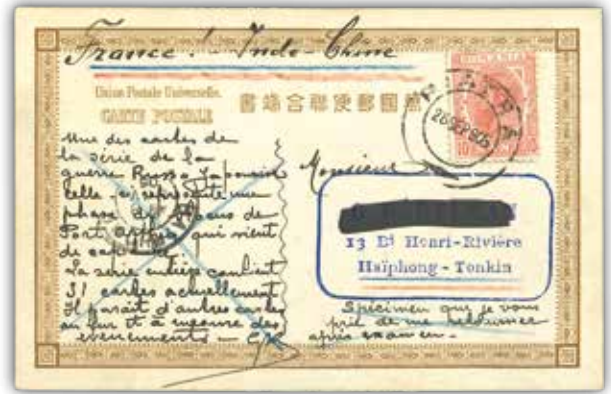 France ! - Indo-Chine
Union Postale Universelle.
CARTE POSTALE
ROMANIA
10
26 SEP 905
Une des cartes de
la série de la
guerre Russo Japonaise
celle ci représente une
phase du de
Port Arthur qui vient
de
La série entière contient
31 cartes actuellement
Il parait d'autres cartes
au fur et à mesure des
evenements -
Monsieur
13 Bd Henri-Rivière
Haïphong - Tonkin
Spécimen que je vous
prie de me retourner
après examen -